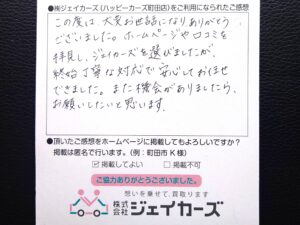 ●㈱ジェイカーズ(ハッピーカーズ町田店)をご利用になられたご感想
この度は大変お世話になりありがとう
ございました。ホームページや口コミを
拝見し、ジェイカーズを選びましたが、
終始丁寧な対応で安心してお任せ
できました。また機会がありましたら、
お願いしたいと思います。
●頂いたご感想をホームページに掲載してもよろしいですか?
掲載は匿名で行います。(例:町田市 K 様)
☑掲載してよい □掲載不可
ご協力ありがとうございました。
想いを乗せて、買取ります
株式会社ジェイカーズ